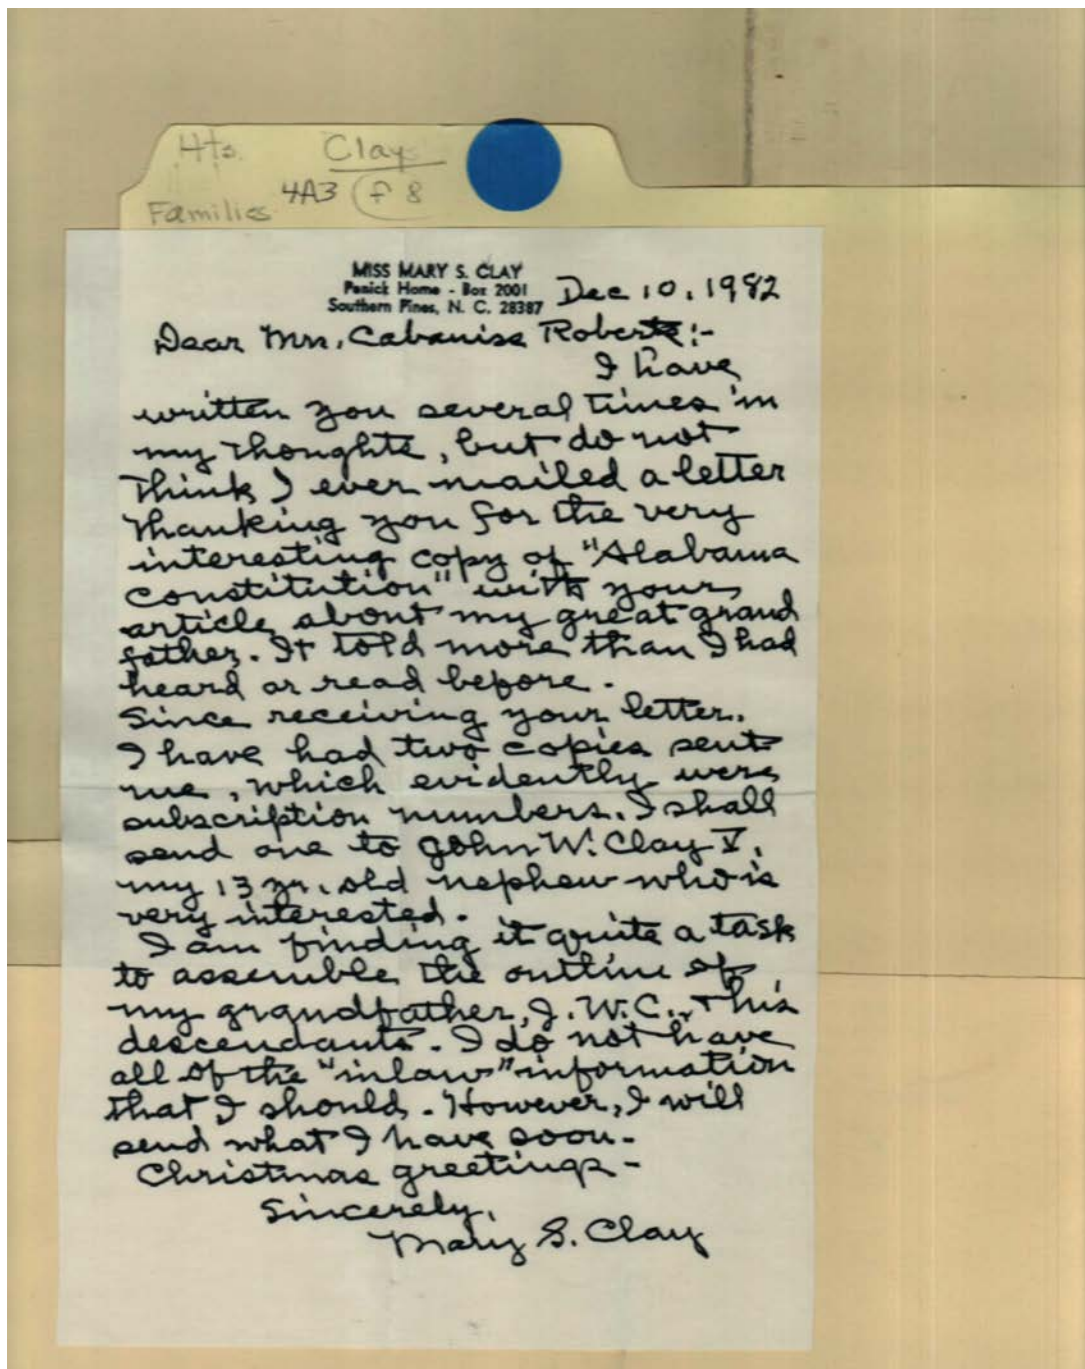 Hts. Clay
4A3 f 8
Families
MISS MARY S. CLAY
Penick Home - Box 2001
Southern Pines, N. C. 28387
Dec 10, 1982
Dear Mrs. Cabaniss Roberts:-
I have
written you several times in
my thoughts, but do not
think I ever mailed a letter
thanking you for the very
interesting copy of "Alabama
Constitution" with your
article about my great grand
father. It told more than I had
heard or read before.
Since receiving your letter,
I have had two copies sent
me, which evidently were
subscription numbers. I shall
send one to John W. Clay V,
my 13 yr. old nephew who is
very interested.
I am finding it quite a task
to assemble the outline of
my grandfather, J. W. C., + his
descendants. I do not have
all of the "inlaw" information
that I should. However, I will
send what I have soon-
Christmas greetings-
Sincerely,
Mary S. Clay